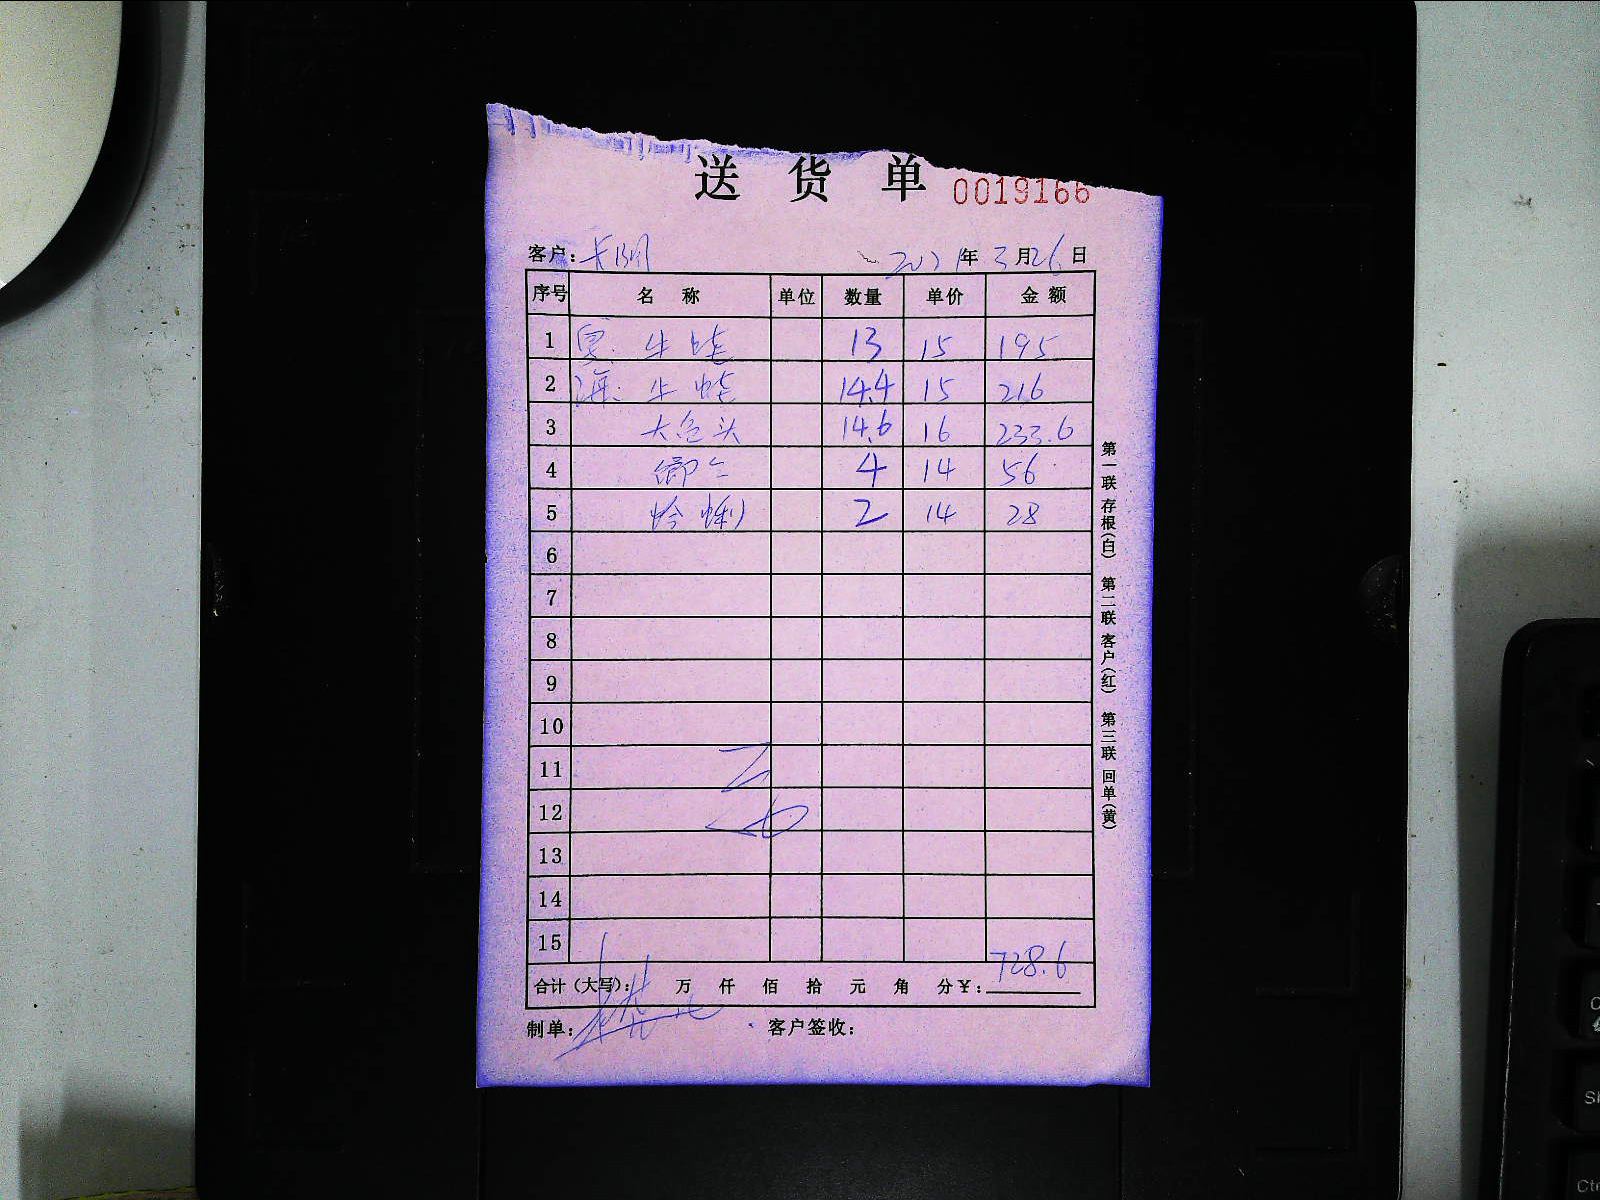 送 货 单 0019166
客户： 2021年 3月26日
序号 名 称 单位 数量 单价 金 额
1 牛蛙 13 15 195
2 牛蛙 14.4 15 216
3 大鱼头 14.6 16 233.6
4 4 14 56
5 蛤蜊 2 14 28
6
7
8
9
10
11
12
13
14
15
合计（大写）： 万 仟 佰 拾 元 角 分￥：728.6
制单： 客户签收：
第一联 存根（白） 第二联 客户（红） 第三联 回单（黄）